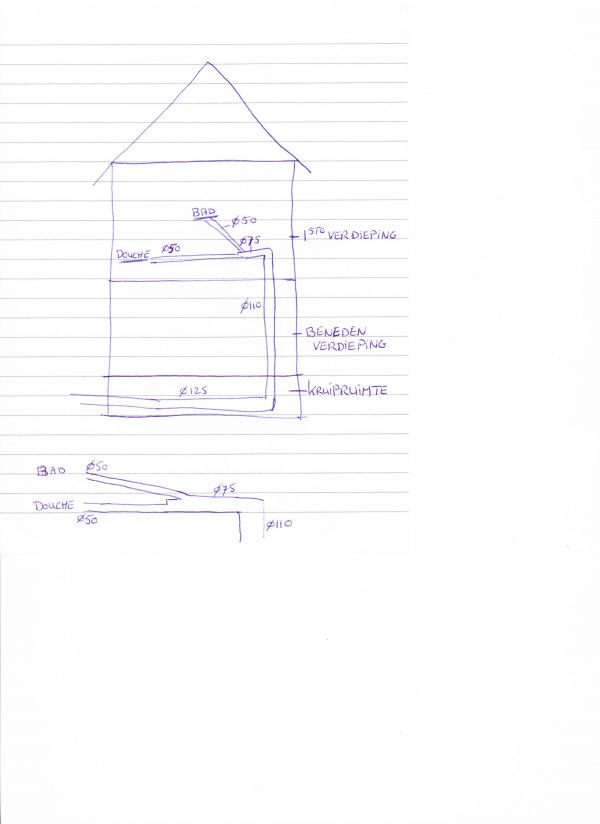 BAD
Ø50
Ø75
DOUCHE Ø50
1STE VERDIEPING
Ø110
BENEDEN
VERDIEPING
Ø125
KRUIPRUIMTE
BAD Ø50
Ø75
DOUCHE
Ø50
Ø110